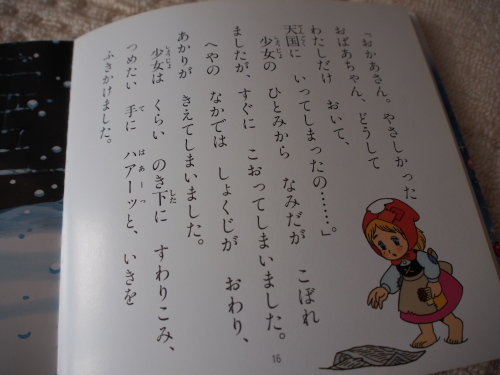 「おかあさん。やさしかった
おばあちゃん、どうして
わたしだけ おいて、
天国に いってしまったの……。」
てんごく
少女の ひとみから なみだが こぼれ
しょうじょ
ましたが、すぐに こおってしまいました。
へやの なかでは しょくじが おわり、
あかりが きえてしまいました。
少女は くらい のき下に すわりこみ、
しょうじょ した
つめたい 手に ハアーッと、いきを
て はあーっ
ふきかけました。
16